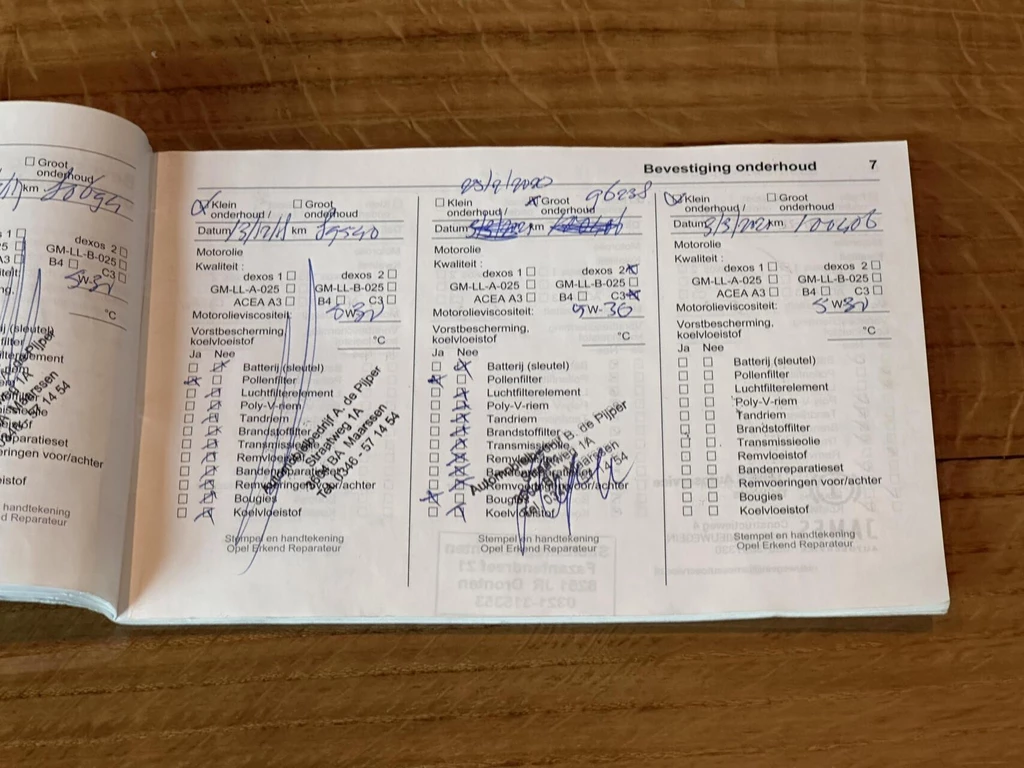 Groot
onderhoud
km
dexos 2
GM-LL-B-025
B4 C3
5W30
°C
Bevestiging onderhoud 7
Klein onderhoud / Groot onderhoud
Datum km 89540
Motorolie
Kwaliteit :
dexos 1 dexos 2
GM-LL-A-025 GM-LL-B-025
ACEA A3 B4 C3
Motorolieviscositeit: 5W30
Vorstbescherming,
koelvloeistof °C
Ja Nee
Batterij (sleutel)
Pollenfilter
Luchtfilterelement
Poly-V-riem
Tandriem
Brandstoffilter
Transmissieolie
Remvloeistof
Bandenreparatieset
Remvoeringen voor/achter
Bougies
Koelvloeistof
A. de Pijper
Straatweg 1A
Maarssen
Tel. 0346 - 57 14 54
Stempel en handtekening
Opel Erkend Reparateur
Klein onderhoud / Groot onderhoud
96238
Datum km
Motorolie
Kwaliteit :
dexos 1 dexos 2
GM-LL-A-025 GM-LL-B-025
ACEA A3 B4 C3
Motorolieviscositeit: 5W-30
Vorstbescherming,
koelvloeistof °C
Ja Nee
Batterij (sleutel)
Pollenfilter
Luchtfilterelement
Poly-V-riem
Tandriem
Brandstoffilter
Transmissieolie
Remvloeistof
Bandenreparatieset
Remvoeringen voor/achter
Bougies
Koelvloeistof
B. de Pijper
Stempel en handtekening
Opel Erkend Reparateur
Klein onderhoud / Groot onderhoud
Datum 3/3/2021 km 100406
Motorolie
Kwaliteit :
dexos 1 dexos 2
GM-LL-A-025 GM-LL-B-025
ACEA A3 B4 C3
Motorolieviscositeit: 5W30
Vorstbescherming,
koelvloeistof °C
Ja Nee
Batterij (sleutel)
Pollenfilter
Luchtfilterelement
Poly-V-riem
Tandriem
Brandstoffilter
Transmissieolie
Remvloeistof
Bandenreparatieset
Remvoeringen voor/achter
Bougies
Koelvloeistof
Stempel en handtekening
Opel Erkend Reparateur